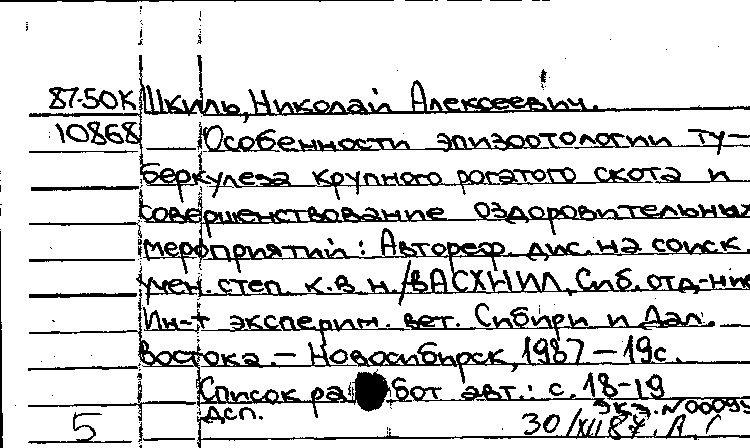 87-50К Шкиль, Николай Алексеевич.
10868 Особенности эпизоотологии ту-
беркулеза крупного рогатого скота и
совершенствование оздоровительных
мероприятий: Автореф. дис. на соиск.
учен. степ. к.в.н./ВАСХНИЛ, Сиб. отд-ние
Ин-т эксперим. вет. Сибири и Дал.
Востока. – Новосибирск, 1987 – 19с.
Список работ авт.: с. 18-19
Дсп. Экз. N 00095
5 30/XII 87.